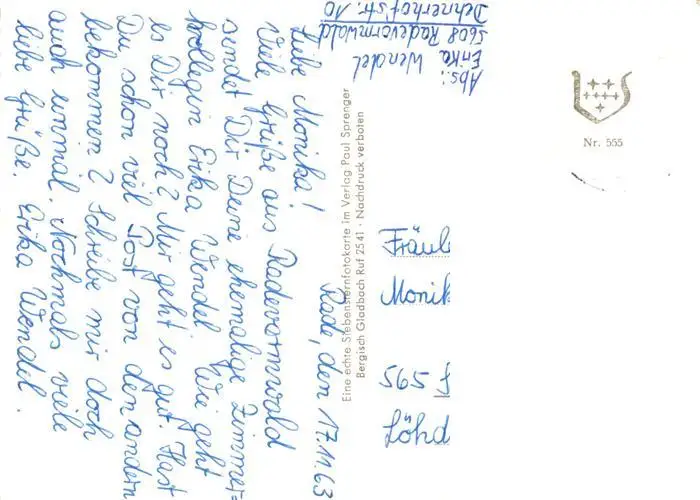 Rade, den 17.11.63
Liebe Monika!
Viele Grüße aus Radevormwald
sendet Dir Deine ehemalige Zimmer=
kollegin Erika Wendel. Wie geht
es Dir noch? Mir geht es gut. Hast
Du schon viel Post von den andern
bekommen? Schreibe mir doch
auch einmal. Nochmals viele
liebe Grüße. Erika Wendel.
Abs.:
Erika Wendel
5608 Radevormwald
Dehnerhofstr. 10
Eine echte Siebensternfotokarte im Verlag Paul Sprenger
Bergisch Gladbach Ruf 2541 · Nachdruck verboten
Nr. 555
Fräul
Monik
565
Löhd